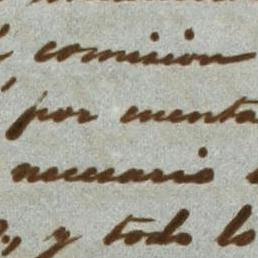 comision
por cuenta
necesario
y todo lo